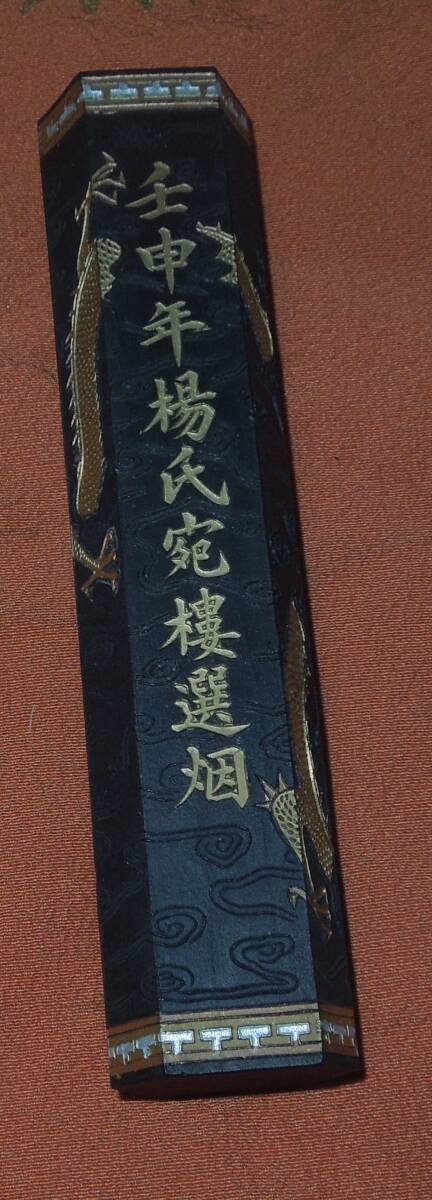 壬申年楊氏宛樓選烟